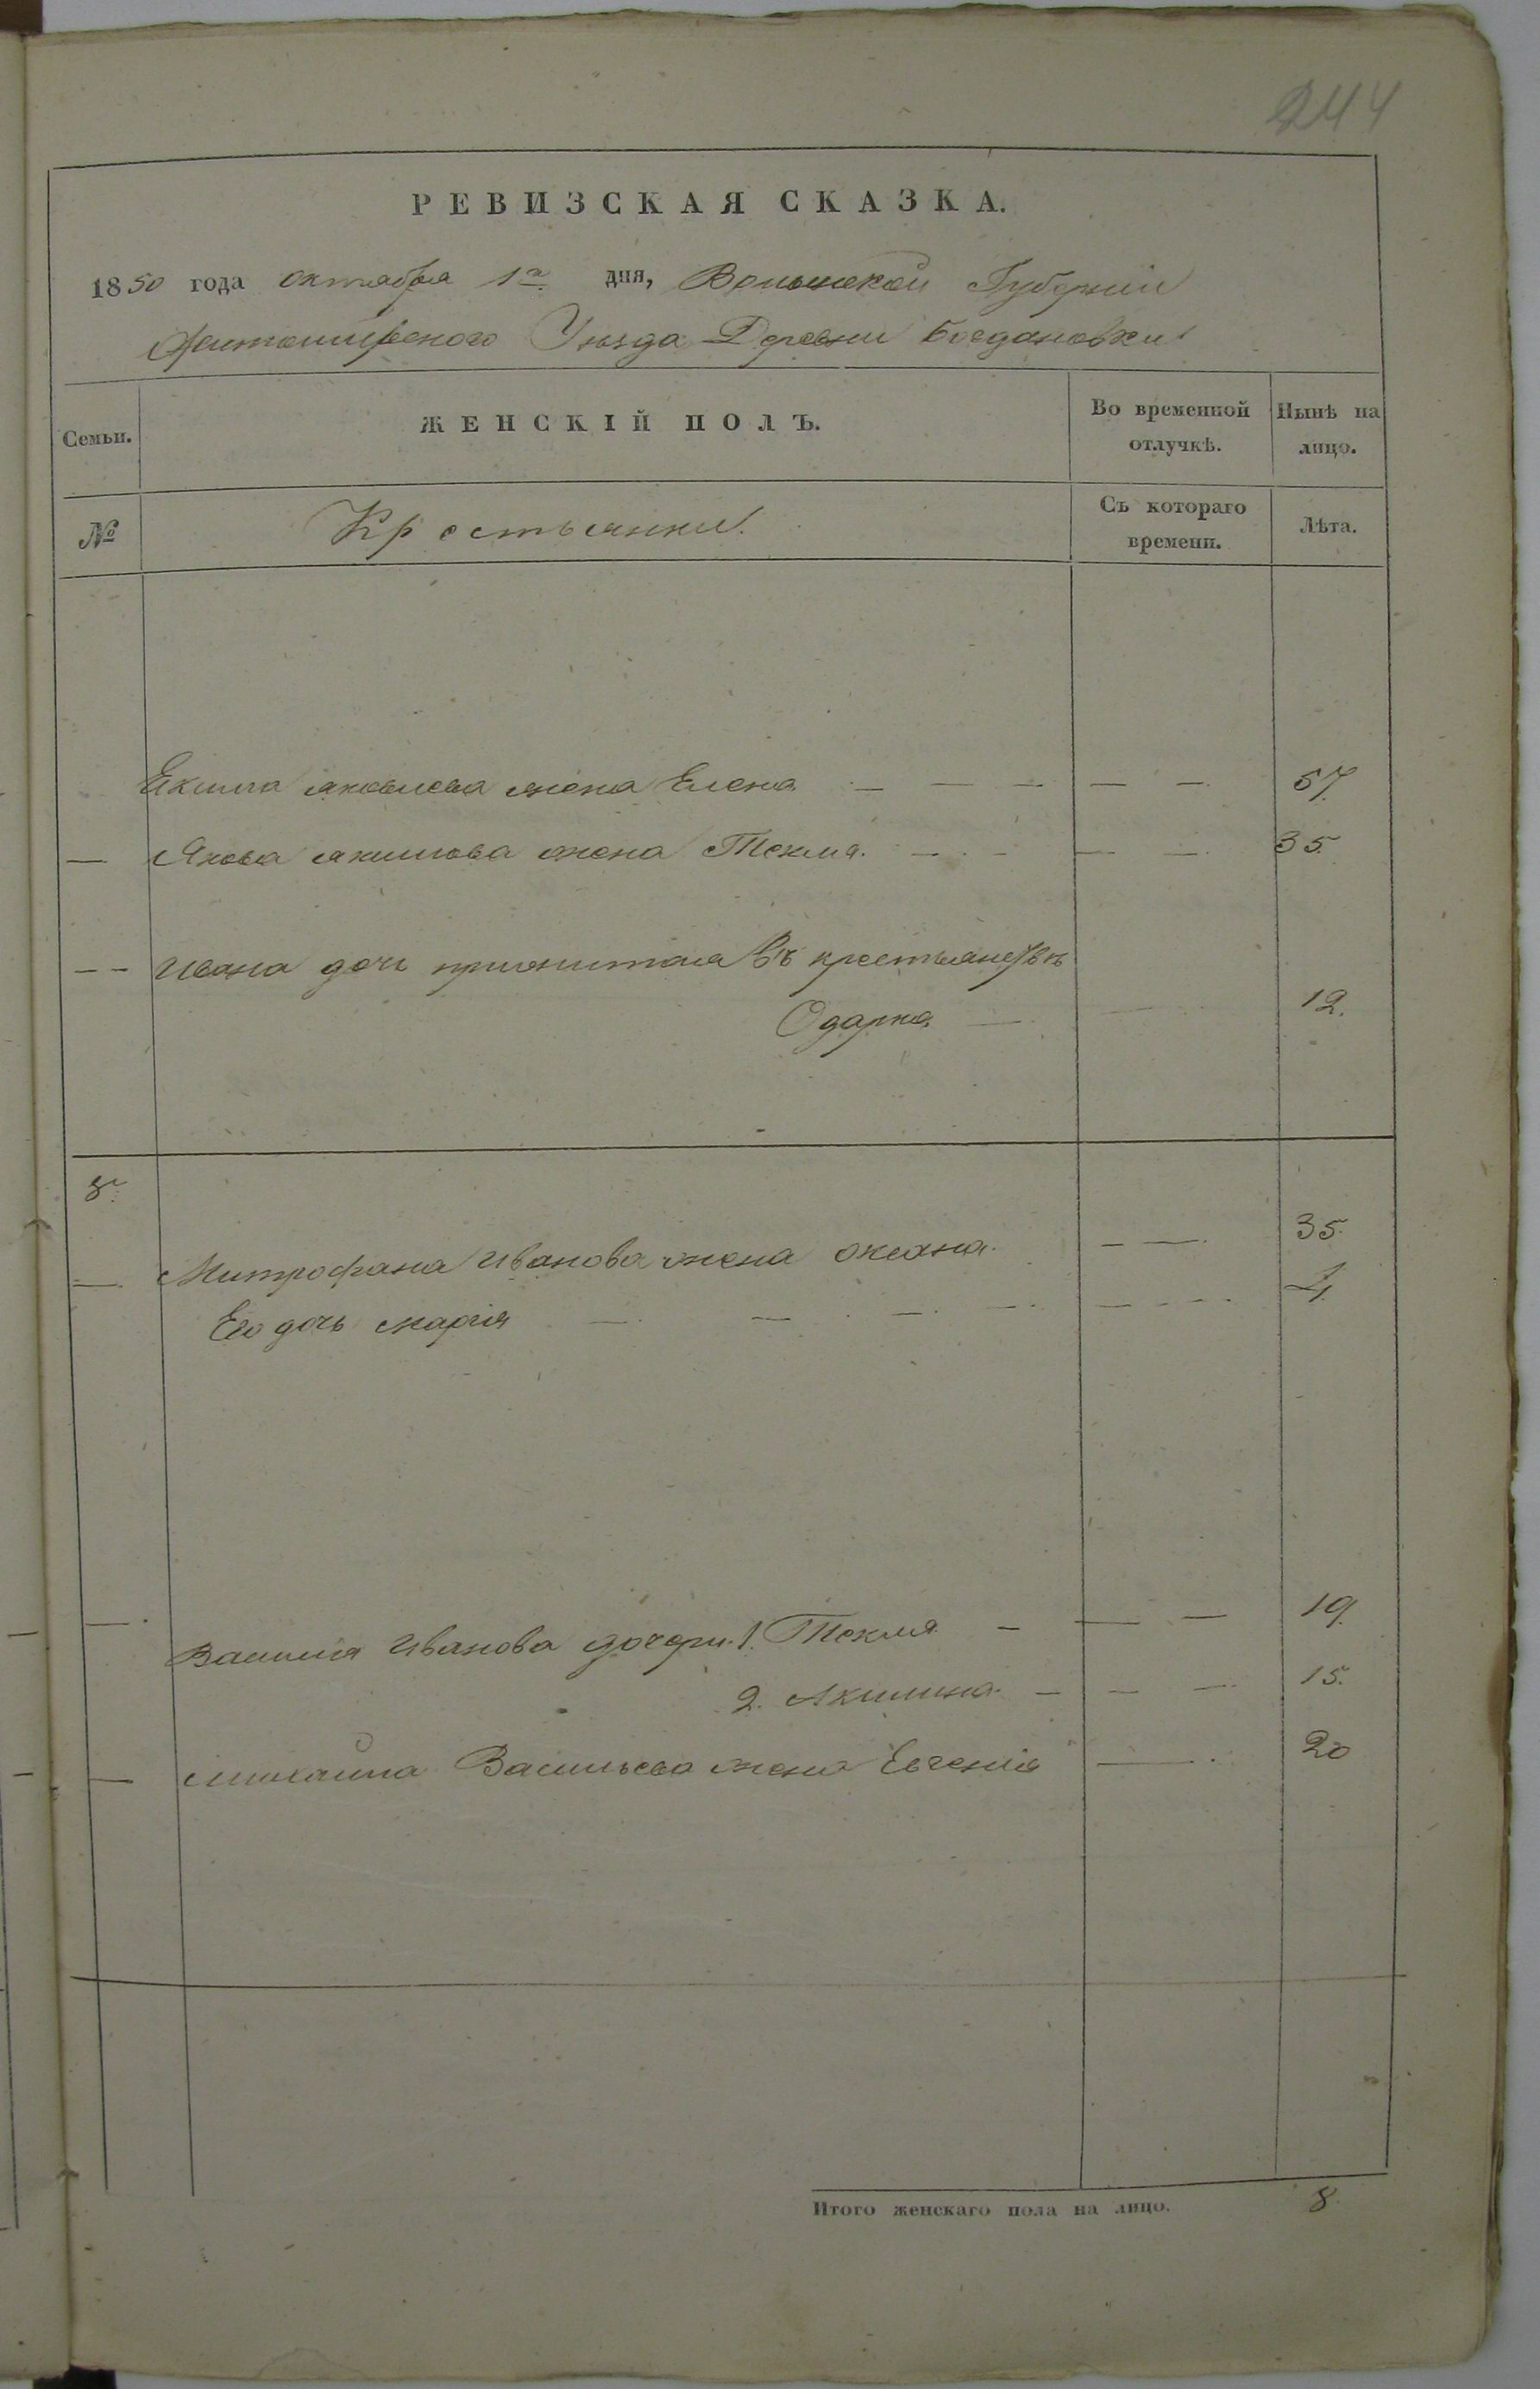 244
РЕВИЗСКАЯ СКАЗКА.
1850 года октября 1го дня, Волынской Губерніи
Житомирского Уѣзда Деревни Богдановки
Семьи.
ЖЕНСКІЙ ПОЛЪ.
Во временной отлучкѣ.
Нынѣ на лицо.
№
Крестьянки.
Съ котораго времени.
Лѣта.
Екима яковлева жена Елена — — — — — 57.
— Якова якимова жена Текля. — — — — 35.
— — Ивана дочь прижитая въ крестьянствѣ
Одарка — 12.
8.
— Митрофана Иванова жена оксана. — — 35.
Его дочь марія — — — — — — — 4.
— Василия Иванова дочери. 1. Текля — — — 19.
2. Акилина — — — 15.
— михайла Васильева жена Евгенія — 20
Итого женскаго пола на лицо. 8.